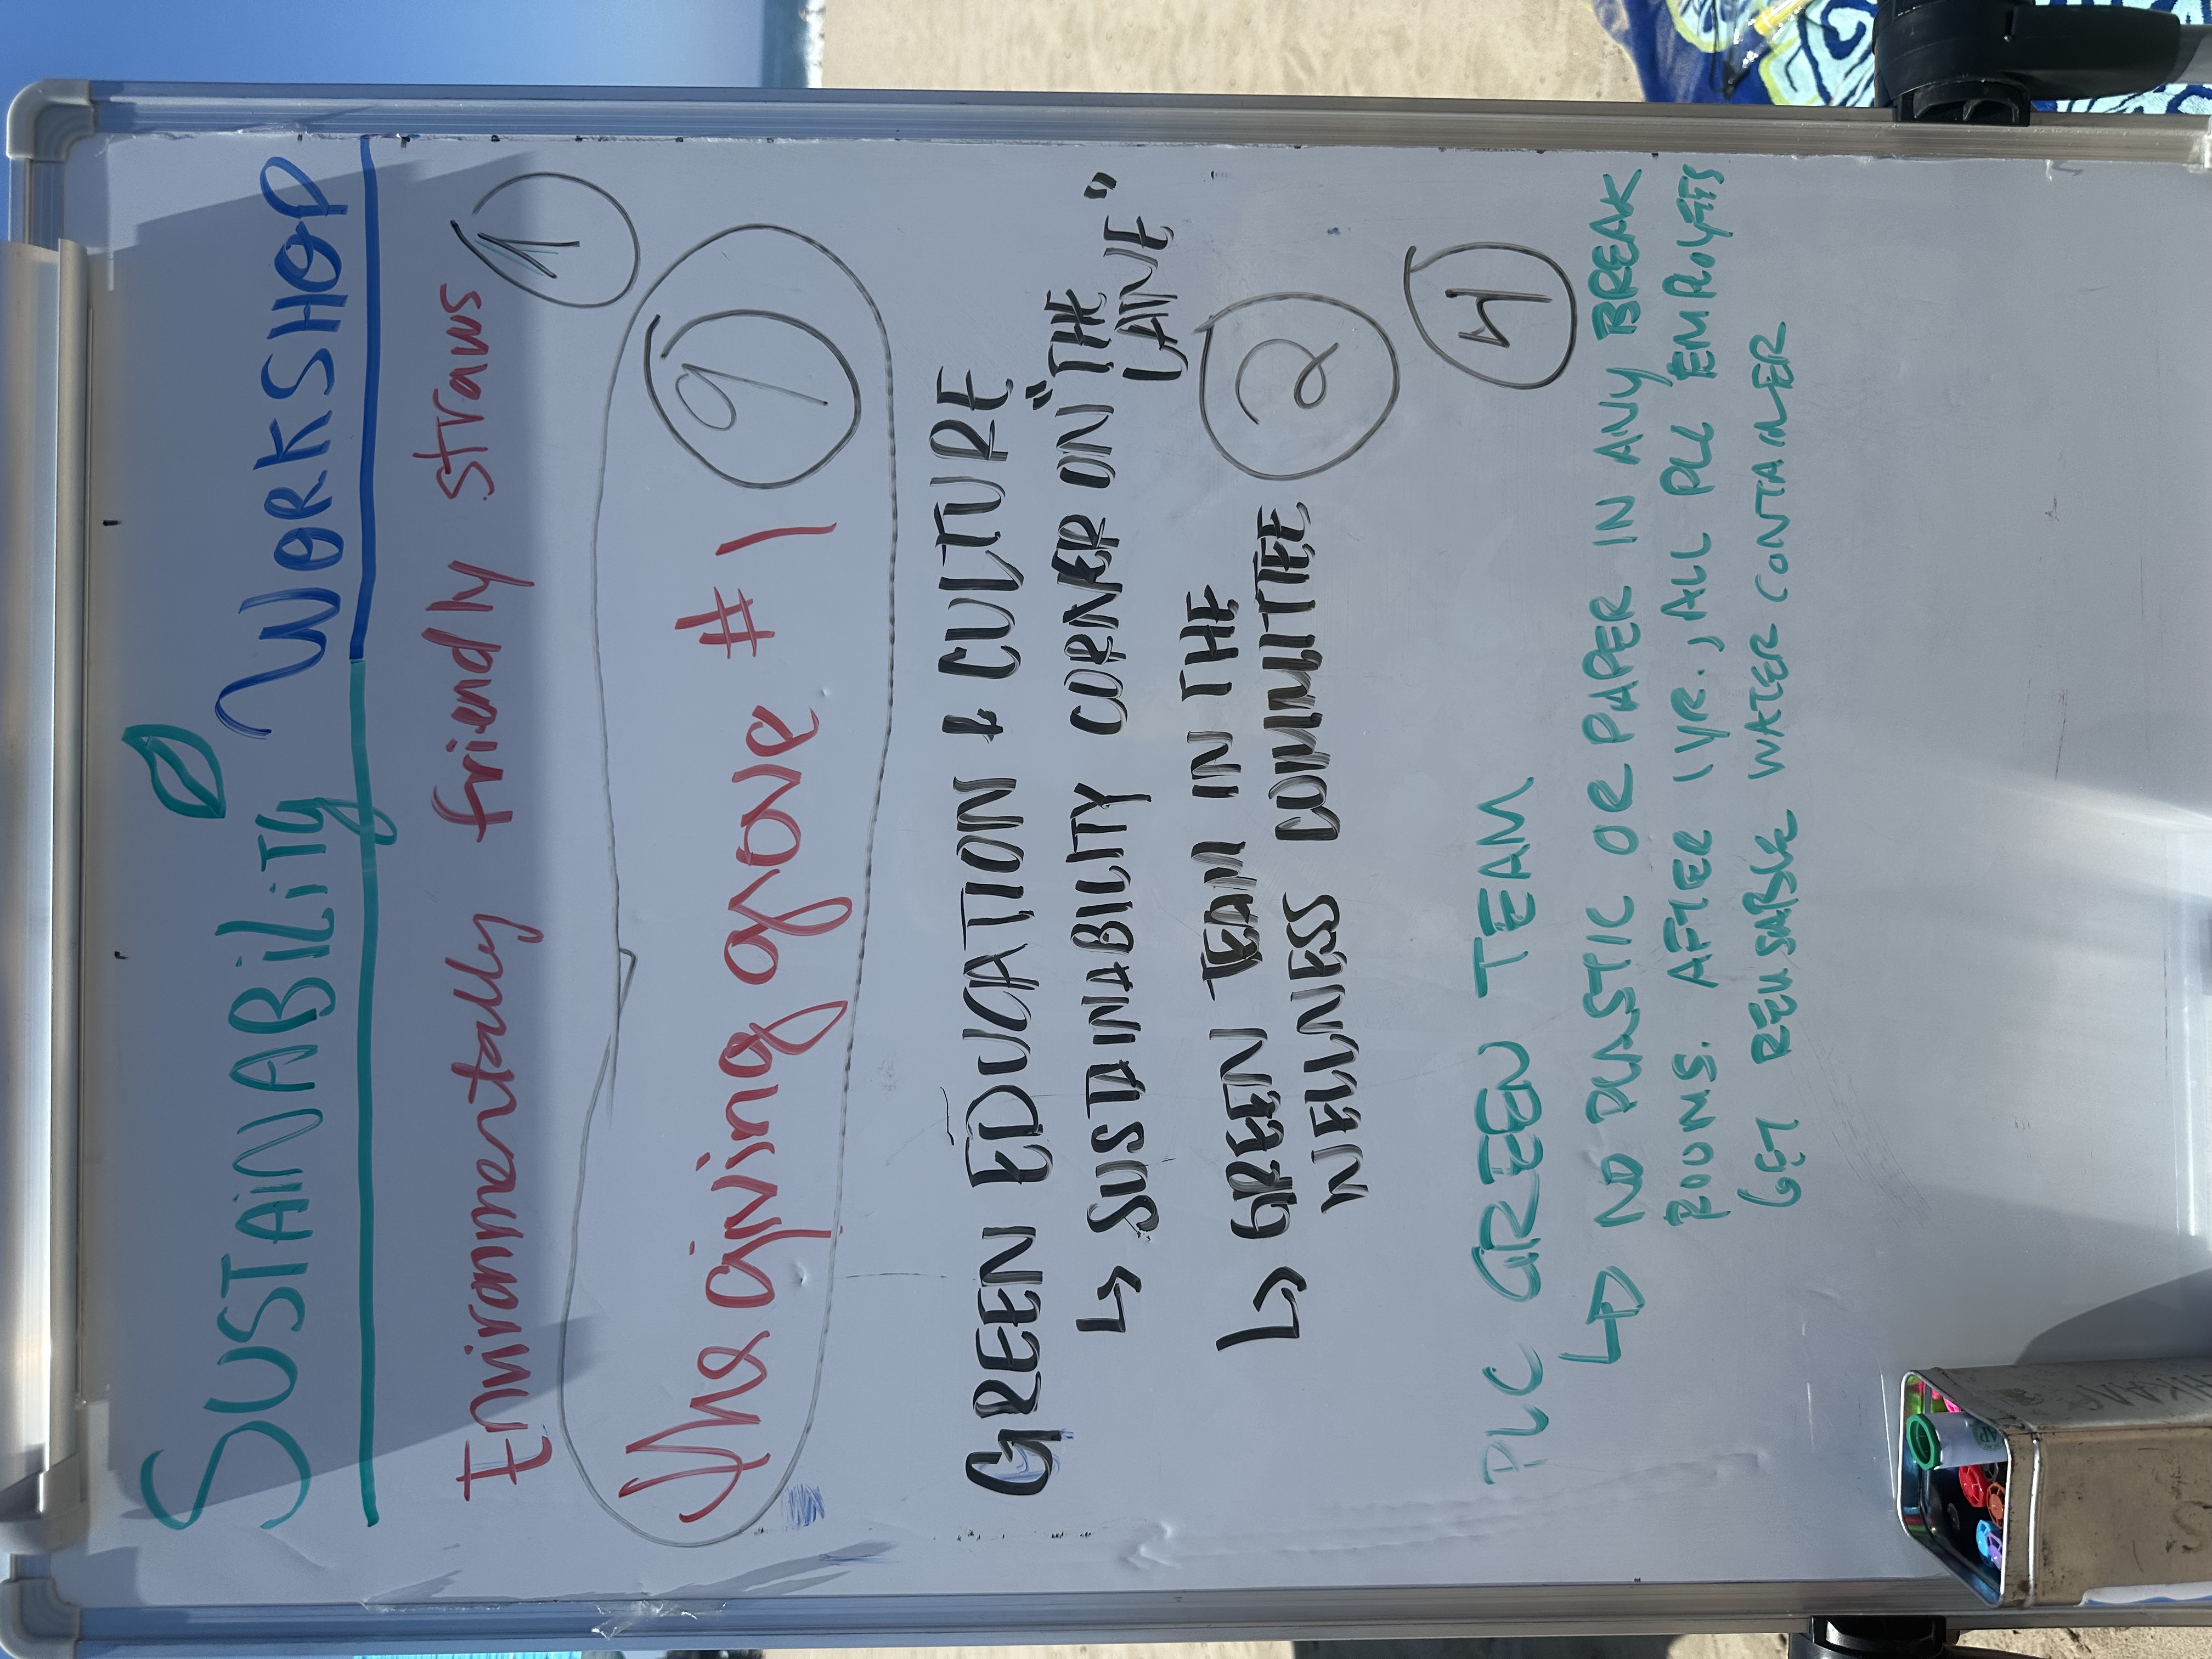 SUSTAINABILITY WORKSHOP
Environmentally friendly straws
1
The giving grove #1
9
GREEN EDUCATION + CULTURE
↳ SUSTAINABILITY CORNER ON "THE
LAINE"
↳ GREEN TEAM IN THE
WELLNESS COMMITTEE
2
PLC GREEN TEAM
4
↳ NO PLASTIC OR PAPER IN ANY BREAK
ROOMS. AFTER 1 YR., ALL PLC EMPLOYEES
GET REUSABLE WATER CONTAINER